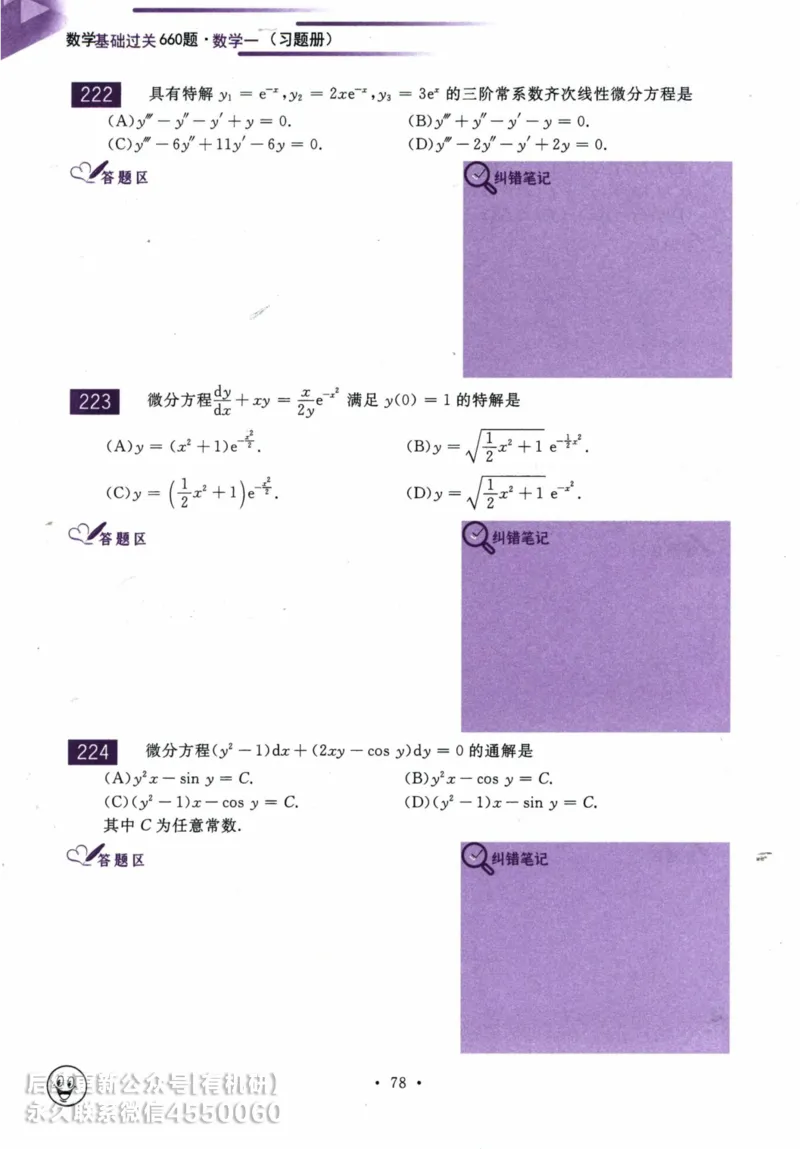 数学基础过关660题·数学一（习题册）
222 具有特解 y₁ = e⁻ˣ, y₂ = 2xe⁻ˣ, y₃ = 3eˣ 的三阶常系数齐次线性微分方程是
(A) y‴ − y″ − y′ + y = 0. (B) y‴ + y″ − y′ − y = 0.
(C) y‴ − 6y″ + 11y′ − 6y = 0. (D) y‴ − 2y″ − y′ + 2y = 0.
答题区 纠错笔记
223 微分方程 dy/dx + xy = x/(2y) e^(−x²) 满足 y(0) = 1 的特解是
(A) y = (x² + 1)e^(−x²/2). (B) y = √(1/2 x² + 1) e^(−1/2 x²).
(C) y = (1/2 x² + 1)e^(−x²/2). (D) y = √(1/2 x² + 1) e^(−x²).
答题区 纠错笔记
224 微分方程(y² − 1)dx + (2xy − cos y)dy = 0 的通解是
(A) y²x − sin y = C. (B) y²x − cos y = C.
(C) (y² − 1)x − cos y = C. (D) (y² − 1)x − sin y = C.
其中 C 为任意常数.
答题区 纠错笔记
· 78 ·
更新公众号[有机研]
永久联系微信4550060